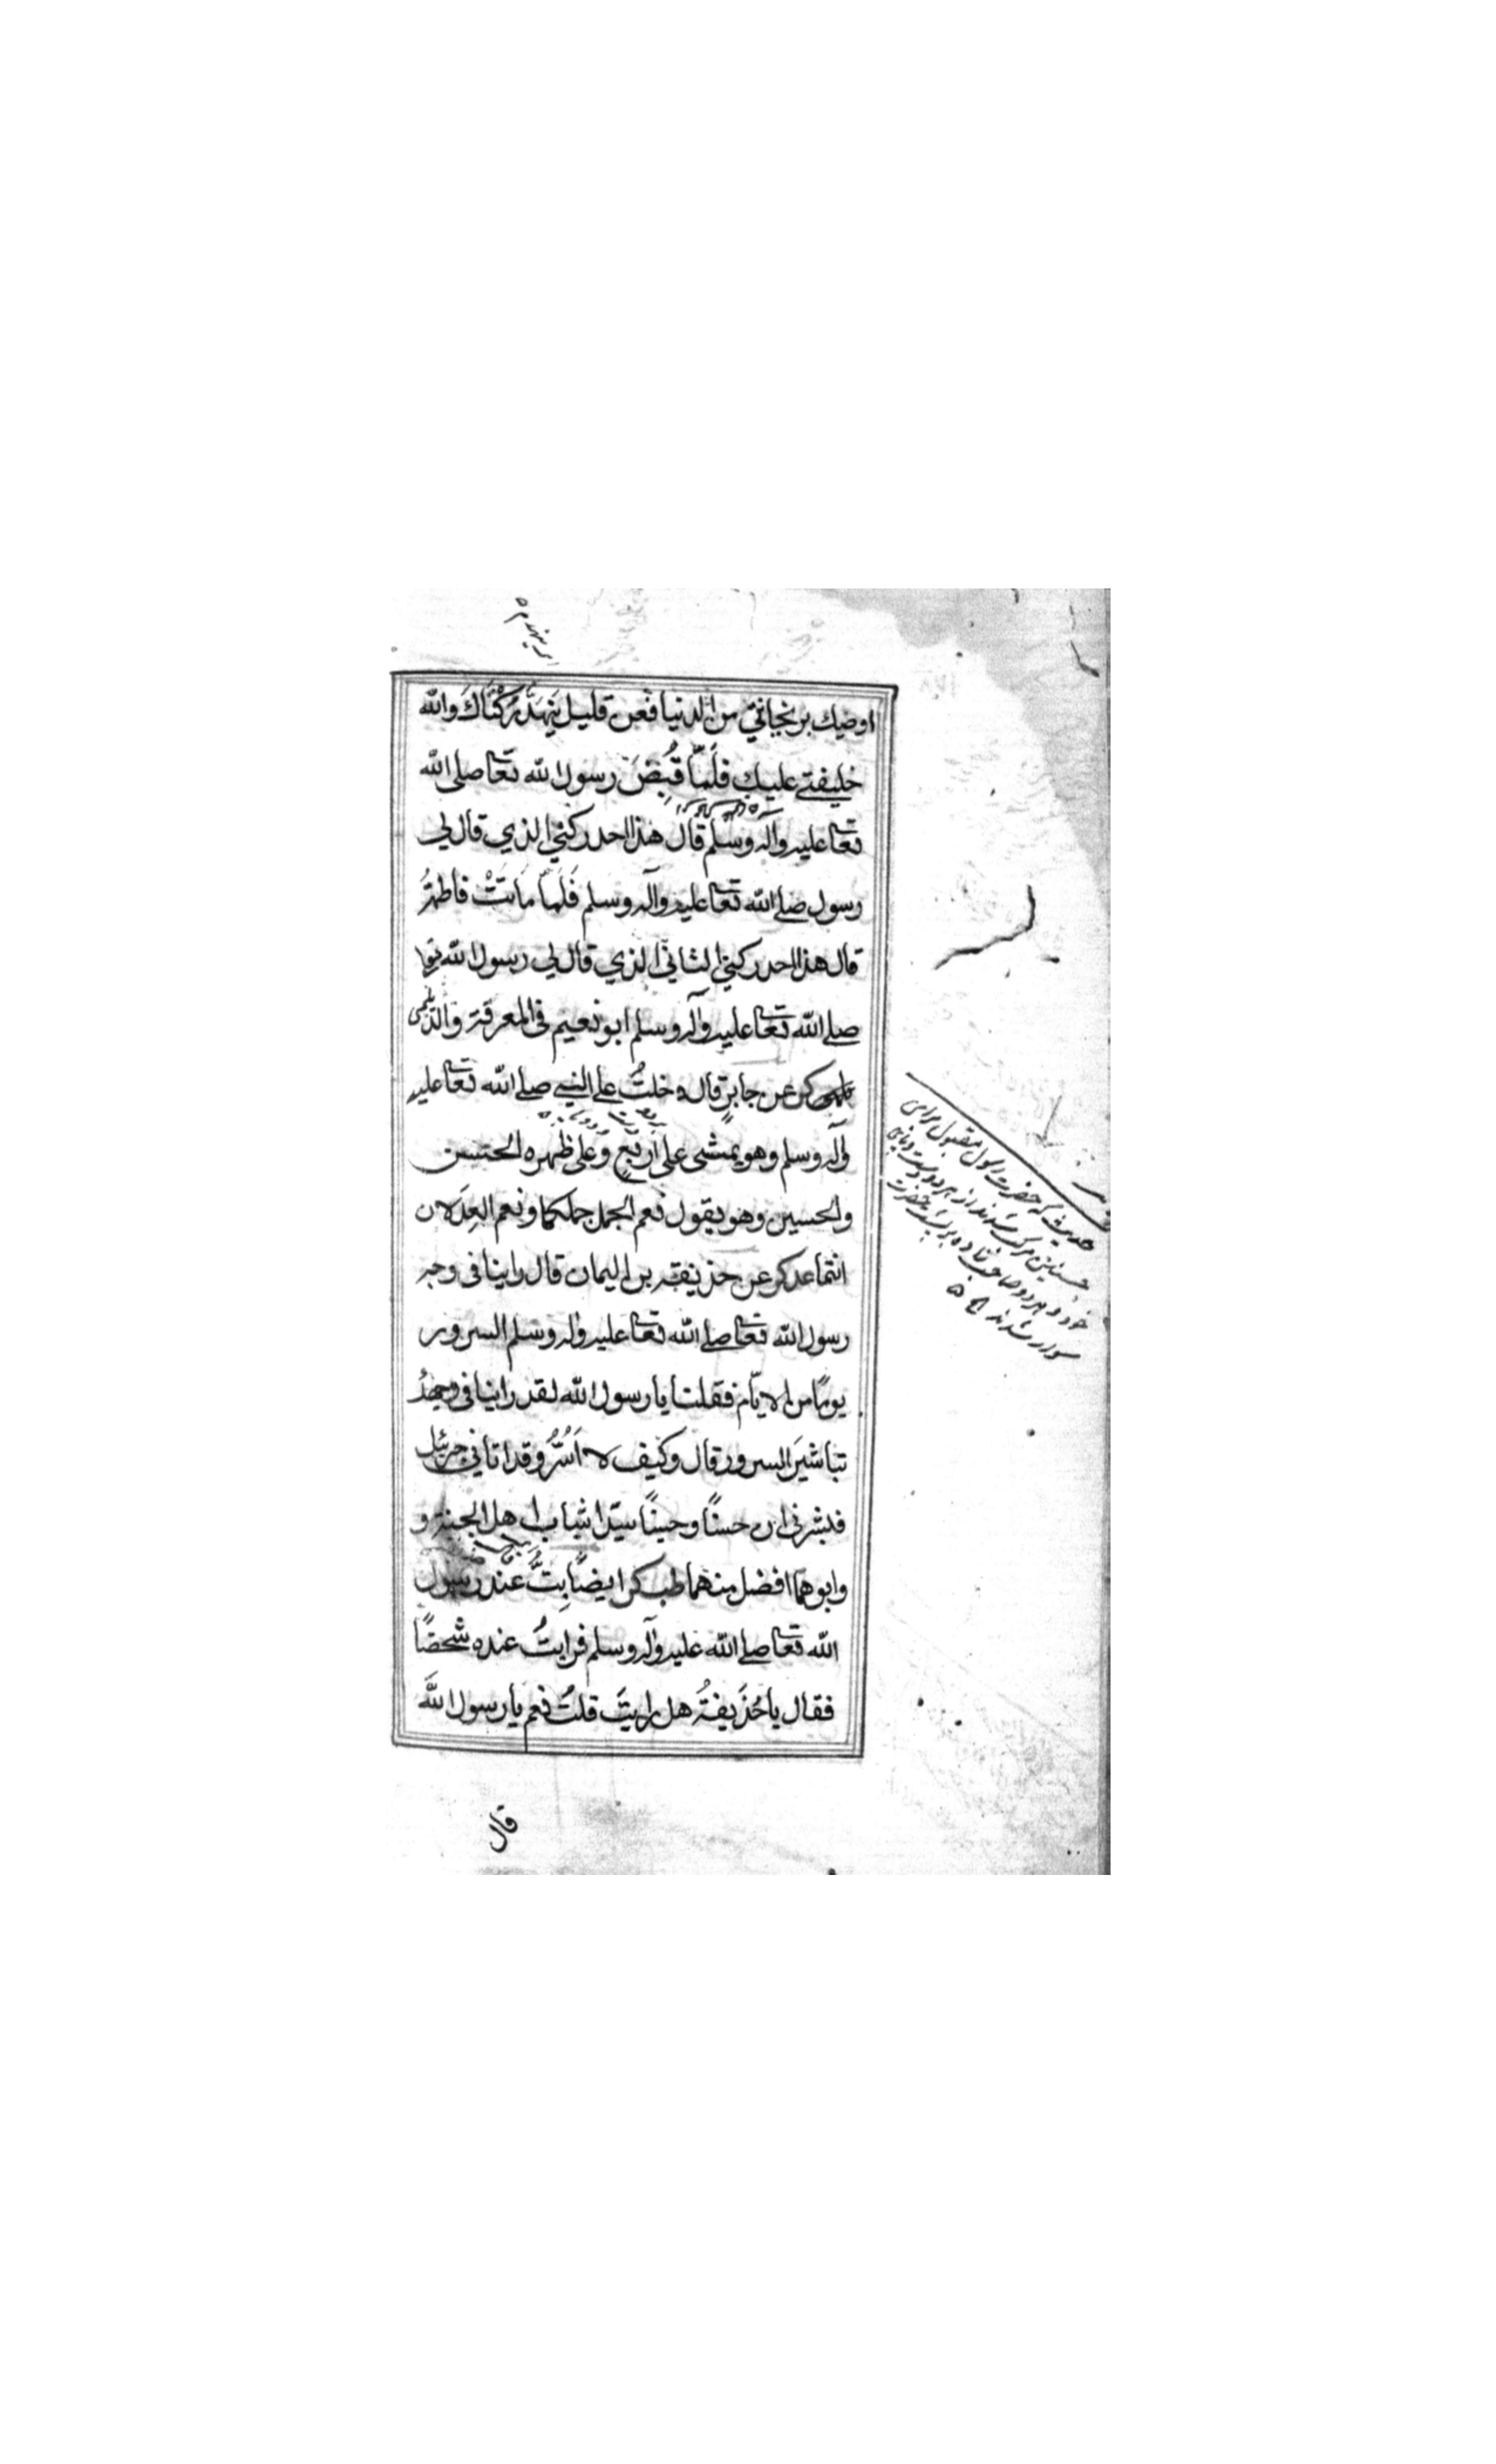 اوصيك بريحانتي من الدنيا فعن قليل ينهد ركناك والله
خليفتے عليك فلما قُبِضَ رسول الله تعا صلى الله
تعا عليه وآله وسلم قال هذا احد ركني الذي قال لي
رسول صلے الله تعا عليه وآله وسلم فَلَمّا مَاتَتْ فاطمةُ
قال هذا احد ركني الثاني الذي قال لي رسول الله
صلے الله تعا عليه وآله وسلم ابو نعيم في المعرفة والديلمى
كر عن جابرٍ قال دخلتُ على النبے صلے الله تعا عليه
وآله وسلم وهو يمشى على اربَعٍ وَعلى ظهره الحسن
والحسين وهو يقول نعم الجمل جملكما ونعم العِدَلان
انتما عد كر عن حذيفة بن اليمان قال راينا في وجه
رسول الله تعا صلے الله تعا عليه وآله وسلم السرور
يومًا من الايّام فقلنا يا رسول الله لقد راينا في وجهك
تباشيَر السرور قال وكيف لا اَسُرُّ وقد اتاني جبرئيل
فبشرني ان حسنًا وحسينًا سيّدا شباب اهل الجنة و
وابوهما افضل منهما طب كر ايضًا بِتُّ عند رسول
الله تعا صلے الله عليه وآله وسلم فرايتُ عنده شخصًا
فقال يا حُذَيفةُ هل رايتَ قلتُ نعم يا رسول الله
قال
حديث که حضرت رسول مقبول برای
حسنين مرکب شدند از هر دو دست و پای
خود و هر دو صاحبزاده بر پشت حضرت
سوار شدند